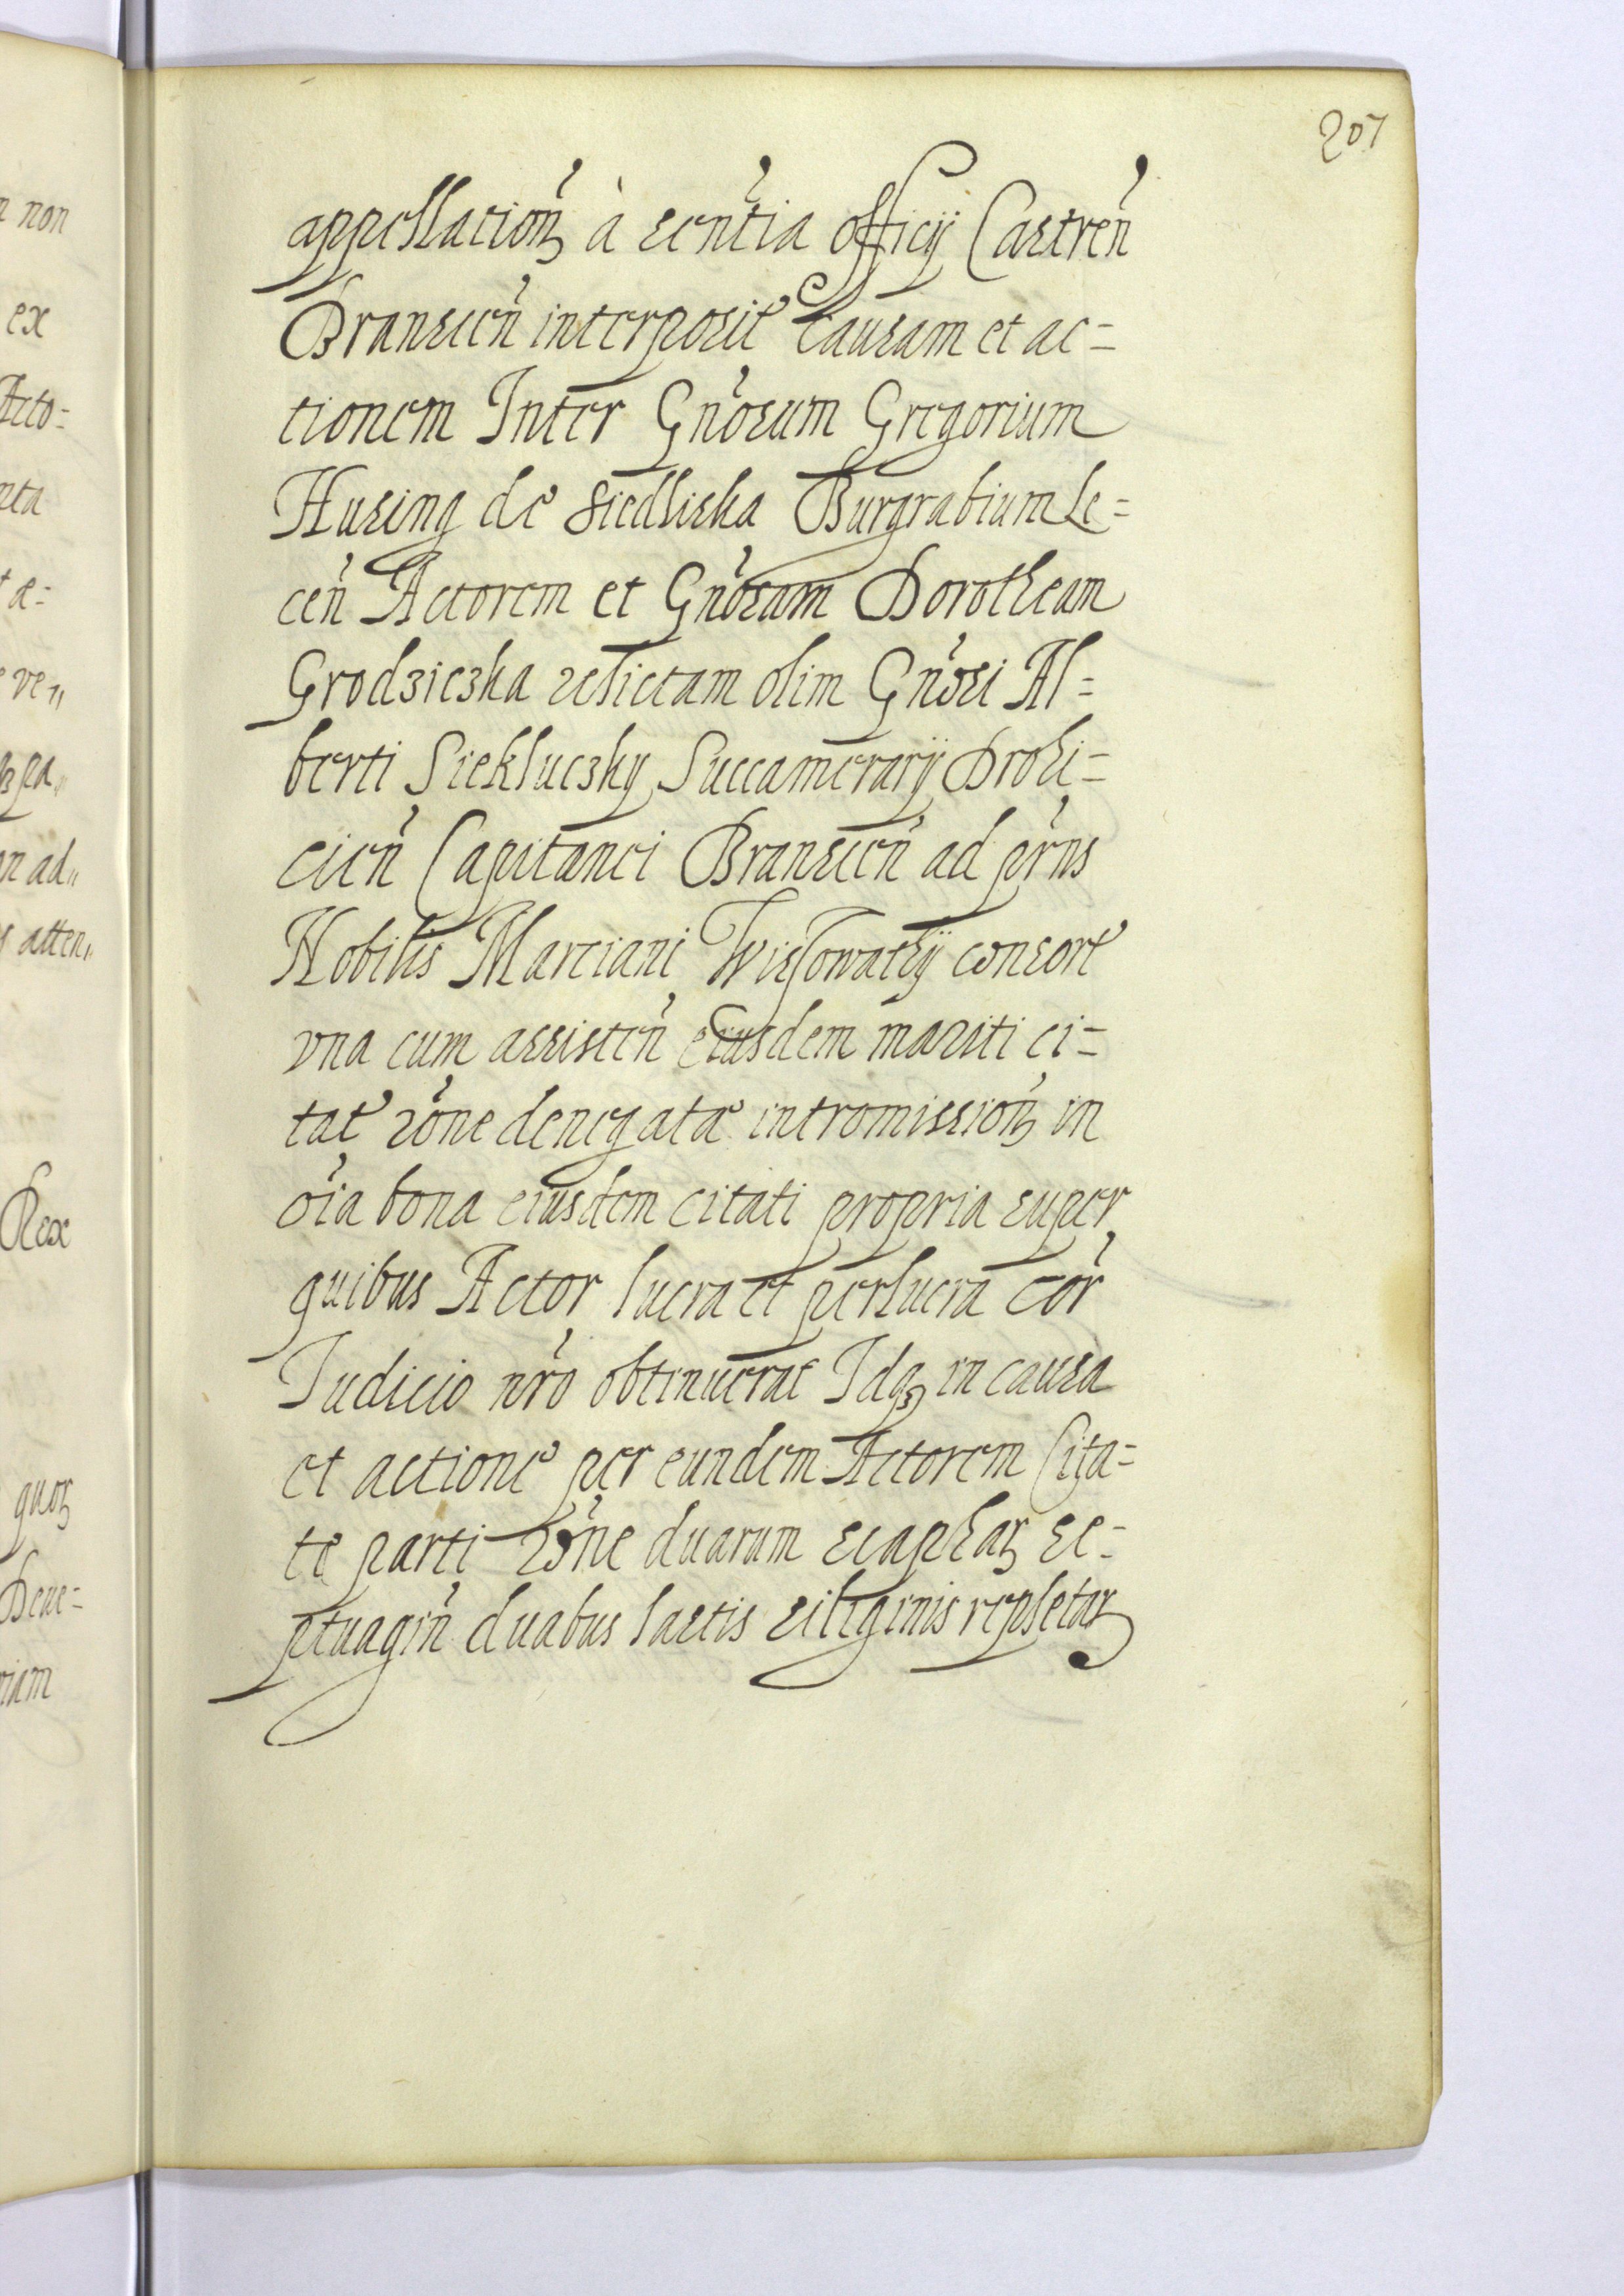 207
appellationꝫ à senˀtia officÿ Castrenˀ
Branscenˀ interposit causam et ac=
tionem Inter Gnˀosum Gregorium
Husing de Siedliska Burgrabium Le=
cenˀ Actorem et Gnˀosam Dorotheam
Grodziczka relictam olim Gnˀosi Al=
berti Siekluczky Succamerarÿ Drohi=
cienˀ Capitanei Branscenˀ ad prˀns
Nobilis Marciani Wissowathÿ consort
vna cum assistenˀ eiusdem mariti ci=
tat rˀone denegatæ intromissionꝫ in
oˀia bona eiusdem citati propria super
quibus Actor lucra et perlucra corˀ
Iudicio nrˀo obtinuerat Idqꝫ in causa
et actione per eundem Actorem Cita=
te parti rˀone duarum scapharꝫ se=
ptuaginˀ duabus lastis siliginis repletarꝫ
n non
ex
Acto=
nta
t a=
ve„
n ad„
s atten„
Rex
quorꝫ
Deue=
riam